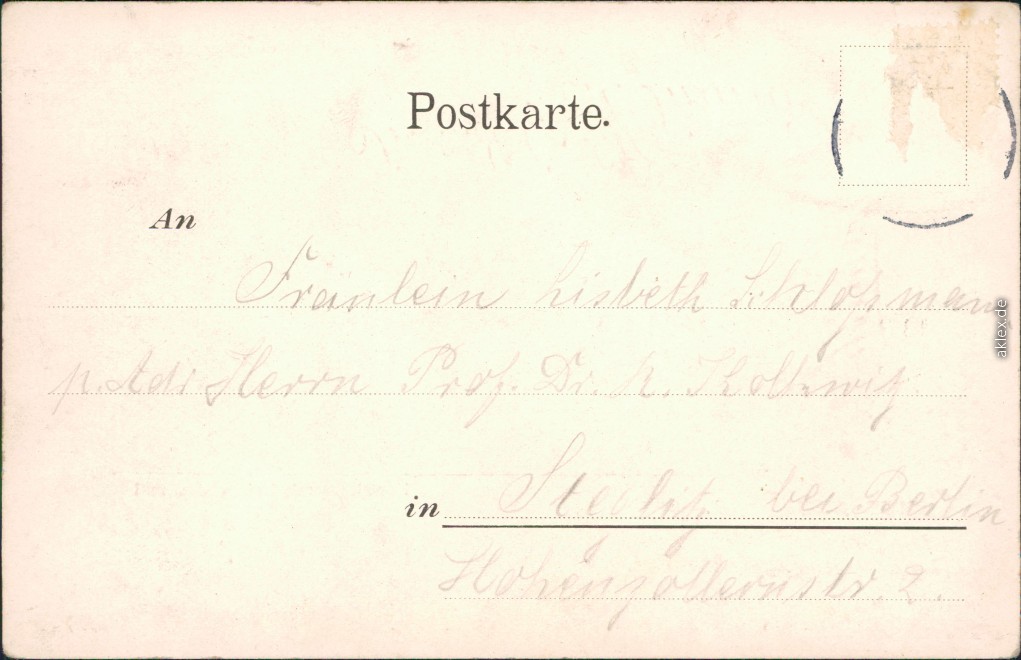 Postkarte.
An
Fräulein Lisbeth Schloßmann
p. Adr. Herrn Prof. Dr. A. Kollwitz
in Steglitz bei Berlin
Hohenzollernstr. 2.
aklex.de